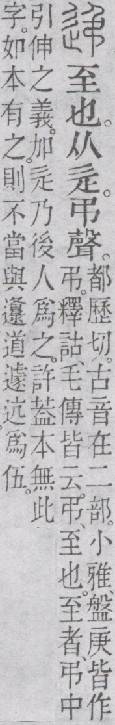 䢩 至也。从辵。弔聲。
都歷切。古音在二部。小雅、盤庚皆作
弔。釋詁毛傳皆云。弔、至也。至者弔中
引伸之義。加辵乃後人爲之。許葢本無此
字。如本有之。則不當與邍道遽迒爲伍。